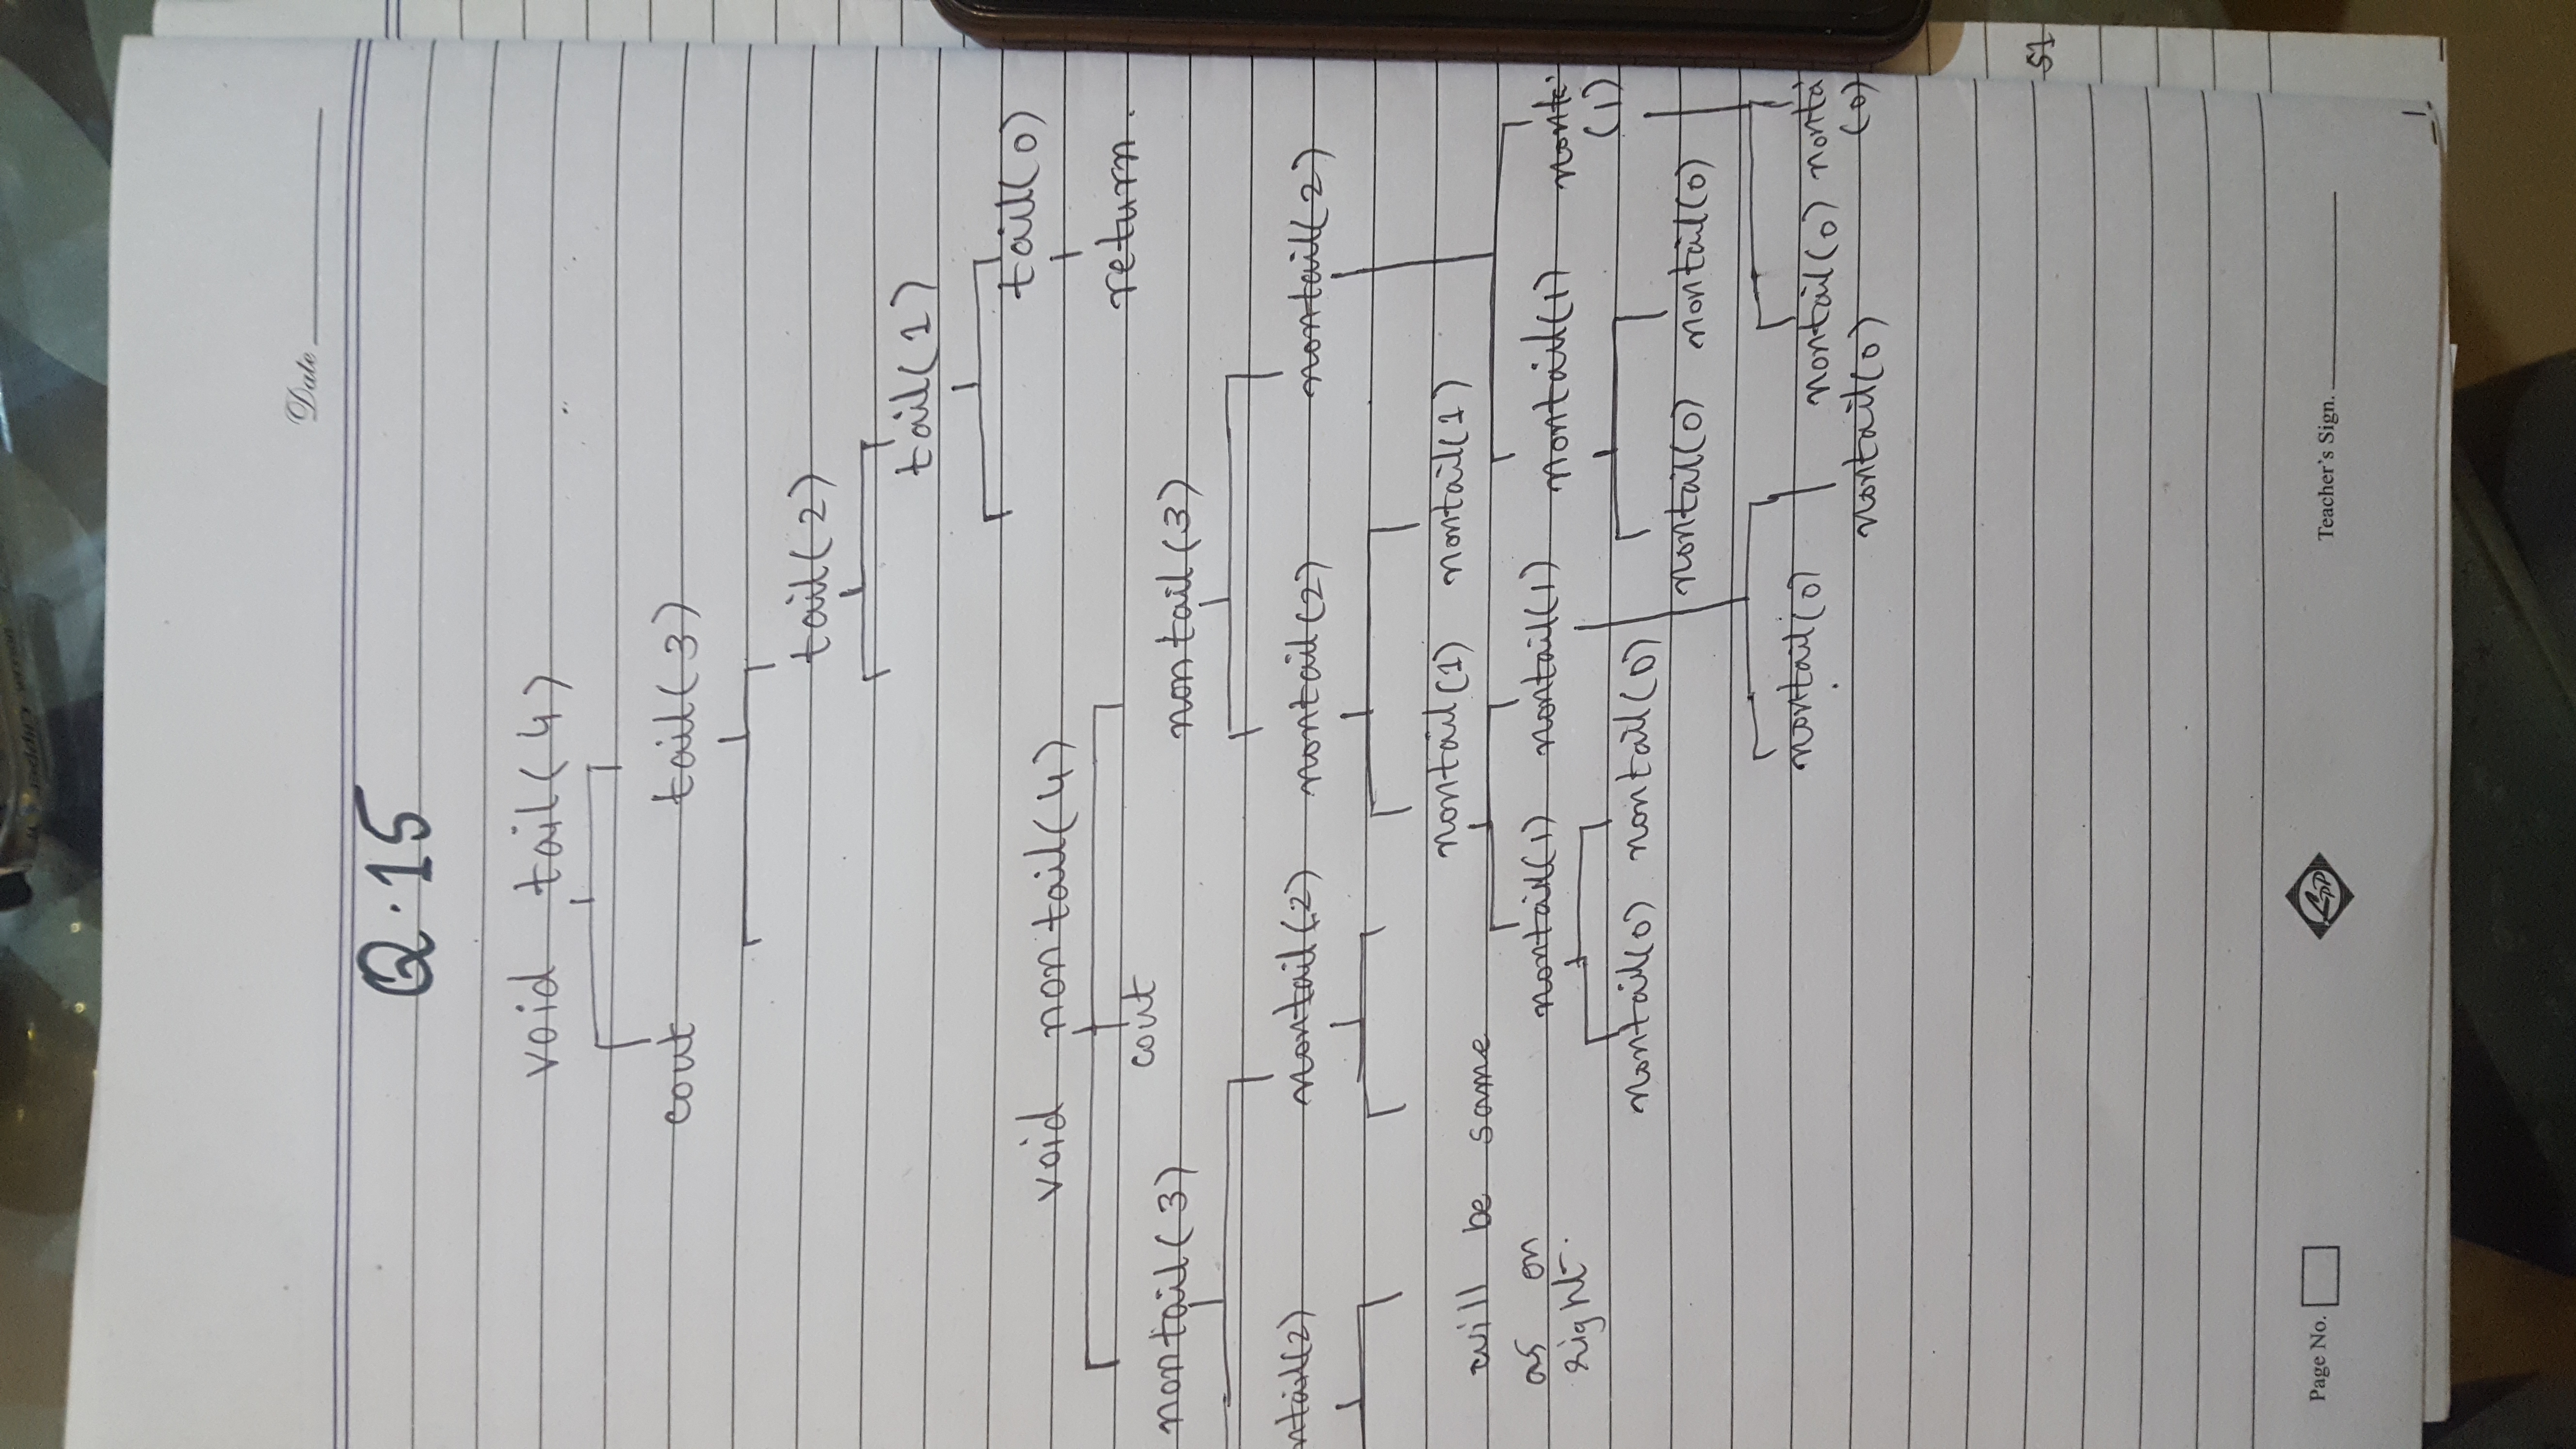 Date
Q.15
void tail(4)
cout tail(3)
tail(2)
tail(1)
tail(0)
return.
void nontail(4)
cout
nontail(3) nontail(3)
ntail(2) nontail(2) nontail(2) nontail(2)
nontail(1) nontail(1)
will be same
as on
right.
nontail(1) nontail(1) nontail(1) nonta
(1)
nontail(0) nontail(0)
nontail(0) nontail(0)
nontail(0) nontail(0) nonta
(0)
nontail(0)
51
Page No.
LPP
Teacher's Sign.